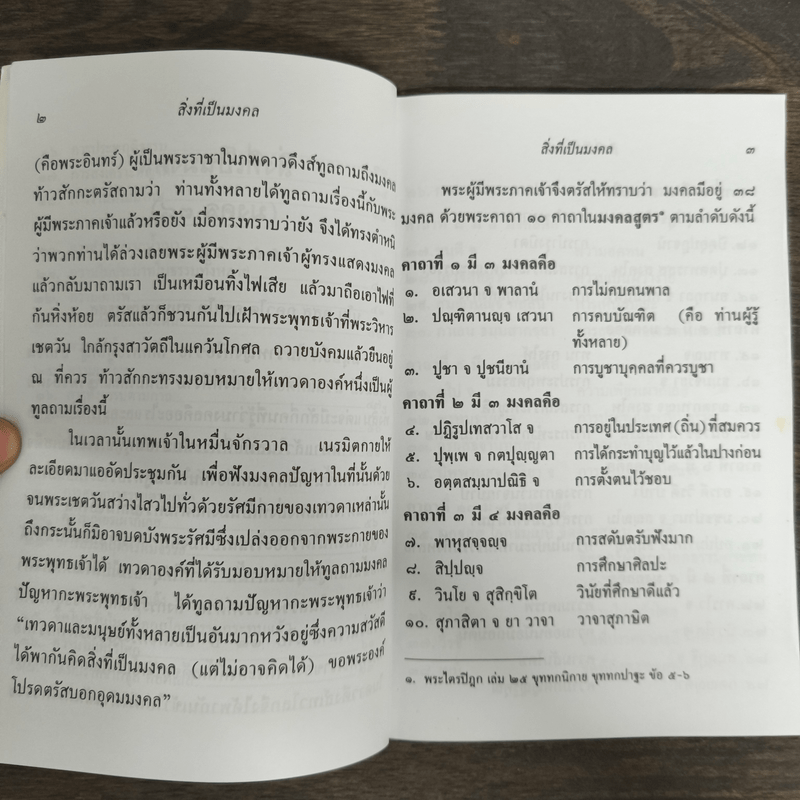 ๒ สิ่งที่เป็นมงคล
(คือพระอินทร์) ผู้เป็นพระราชาในภพดาวดึงส์ทูลถามถึงมงคล
ท้าวสักกะตรัสถามว่า ท่านทั้งหลายได้ทูลถามเรื่องนี้กับพระ
ผู้มีพระภาคเจ้าแล้วหรือยัง เมื่อทรงทราบว่ายัง จึงได้ทรงตำหนิ
ว่าพวกท่านได้ล่วงเลยพระผู้มีพระภาคเจ้าผู้ทรงแสดงมงคล
แล้วกลับมาถามเรา เป็นเหมือนทิ้งไฟเสีย แล้วมาถือเอาไฟที่
ก้นหิ่งห้อย ตรัสแล้วก็ชวนกันไปเฝ้าพระพุทธเจ้าที่พระวิหาร
เชตวัน ใกล้กรุงสาวัตถีในแคว้นโกศล ถวายบังคมแล้วยืนอยู่
ณ ที่ควร ท้าวสักกะทรงมอบหมายให้เทวดาองค์หนึ่งเป็นผู้
ทูลถามเรื่องนี้
ในเวลานั้นเทพเจ้าในหมื่นจักรวาล เนรมิตกายให้
ละเอียดมาแออัดประชุมกัน เพื่อฟังมงคลปัญหาในที่นั้นด้วย
จนพระเชตวันสว่างไสวไปทั่วด้วยรัศมีกายของเทวดาเหล่านั้น
ถึงกระนั้นก็มิอาจบดบังพระรัศมีซึ่งเปล่งออกจากพระกายของ
พระพุทธเจ้าได้ เทวดาองค์ที่ได้รับมอบหมายให้ทูลถามมงคล
ปัญหากะพระพุทธเจ้า ได้ทูลถามปัญหากะพระพุทธเจ้าว่า
“เทวดาและมนุษย์ทั้งหลายเป็นอันมากหวังอยู่ซึ่งความสวัสดี
ได้พากันคิดสิ่งที่เป็นมงคล (แต่ไม่อาจคิดได้) ขอพระองค์
โปรดตรัสบอกอุดมมงคล”
สิ่งที่เป็นมงคล ๓
พระผู้มีพระภาคเจ้าจึงตรัสให้ทราบว่า มงคลมีอยู่ ๓๘
มงคล ด้วยพระคาถา ๑๐ คาถาในมงคลสูตร๑ ตามลำดับดังนี้
คาถาที่ ๑ มี ๓ มงคลคือ
๑. อเสวนา จ พาลานํ การไม่คบคนพาล
๒. ปณฺฑิตานญฺจ เสวนา การคบบัณฑิต (คือ ท่านผู้รู้
ทั้งหลาย)
๓. ปูชา จ ปูชนียานํ การบูชาบุคคลที่ควรบูชา
คาถาที่ ๒ มี ๓ มงคลคือ
๔. ปฏิรูปเทสวาโส จ การอยู่ในประเทศ (ถิ่น) ที่สมควร
๕. ปุพฺเพ จ กตปุญฺญตา การได้กระทำบุญไว้แล้วในปางก่อน
๖. อตฺตสมฺมาปณิธิ จ การตั้งตนไว้ชอบ
คาถาที่ ๓ มี ๔ มงคลคือ
๗. พาหุสจฺจญฺจ การสดับตรับฟังมาก
๘. สิปฺปญฺจ การศึกษาศิลปะ
๙. วินโย จ สุสิกฺขิโต วินัยที่ศึกษาดีแล้ว
๑๐. สุภาสิตา จ ยา วาจา วาจาสุภาษิต
๑. พระไตรปิฎก เล่ม ๒๕ ขุททกนิกาย ขุททกปาฐะ ข้อ ๕-๖